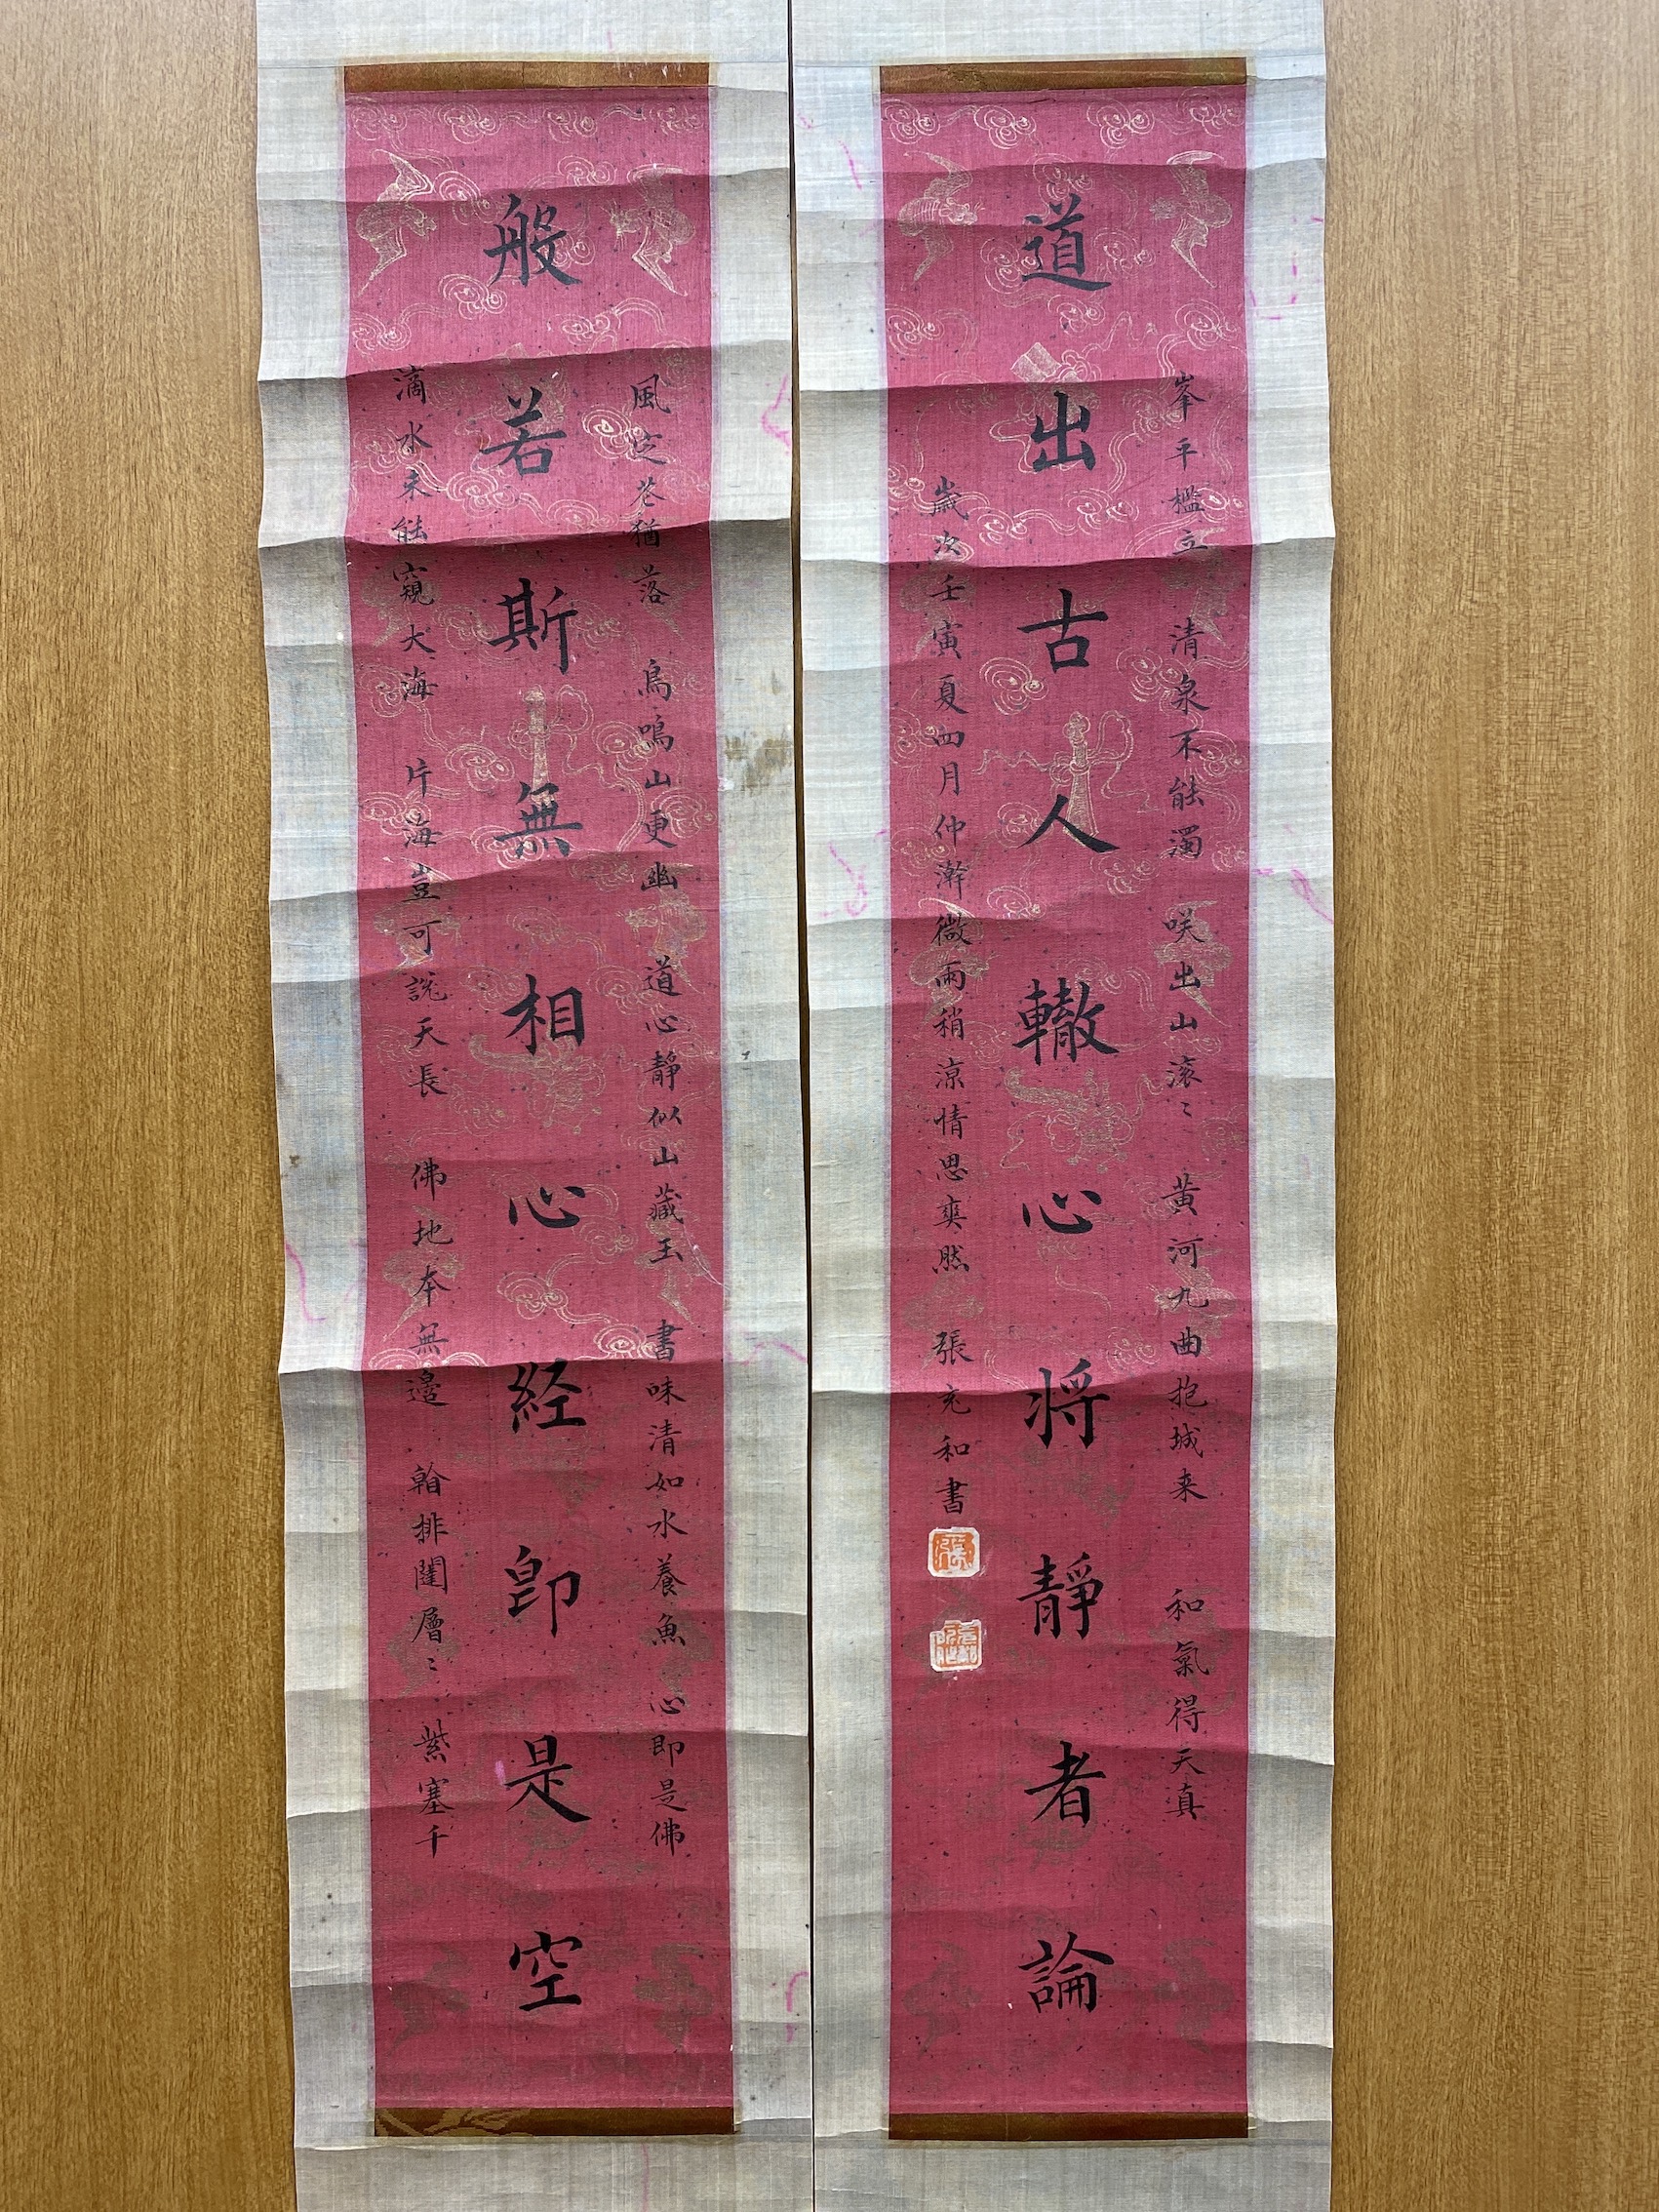 風定花猶落 鳥鳴山更幽 道心靜似山藏玉 書味清如水養魚 心即是佛
般若斯無相心経卽是空
滴水未能窺大海 片海豈可說天長 佛地本無邊 翰排闥層〻 紫塞千
峯平檻立 清泉不能濁 咲出山滚〻 黄河九曲抱城来 和氣得天真
道出古人轍心将靜者論
歲次壬寅夏四月仲澣微雨稍涼情思爽然 張充和書